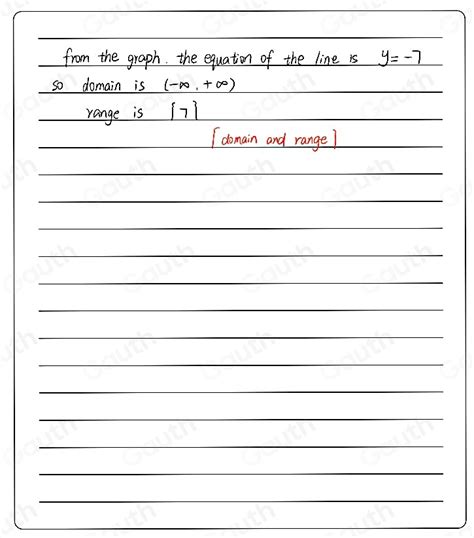 from the graph. the equation of the line is y = -7
so domain is (-∞, +∞)
range is [7]
[domain and range]
Gauth